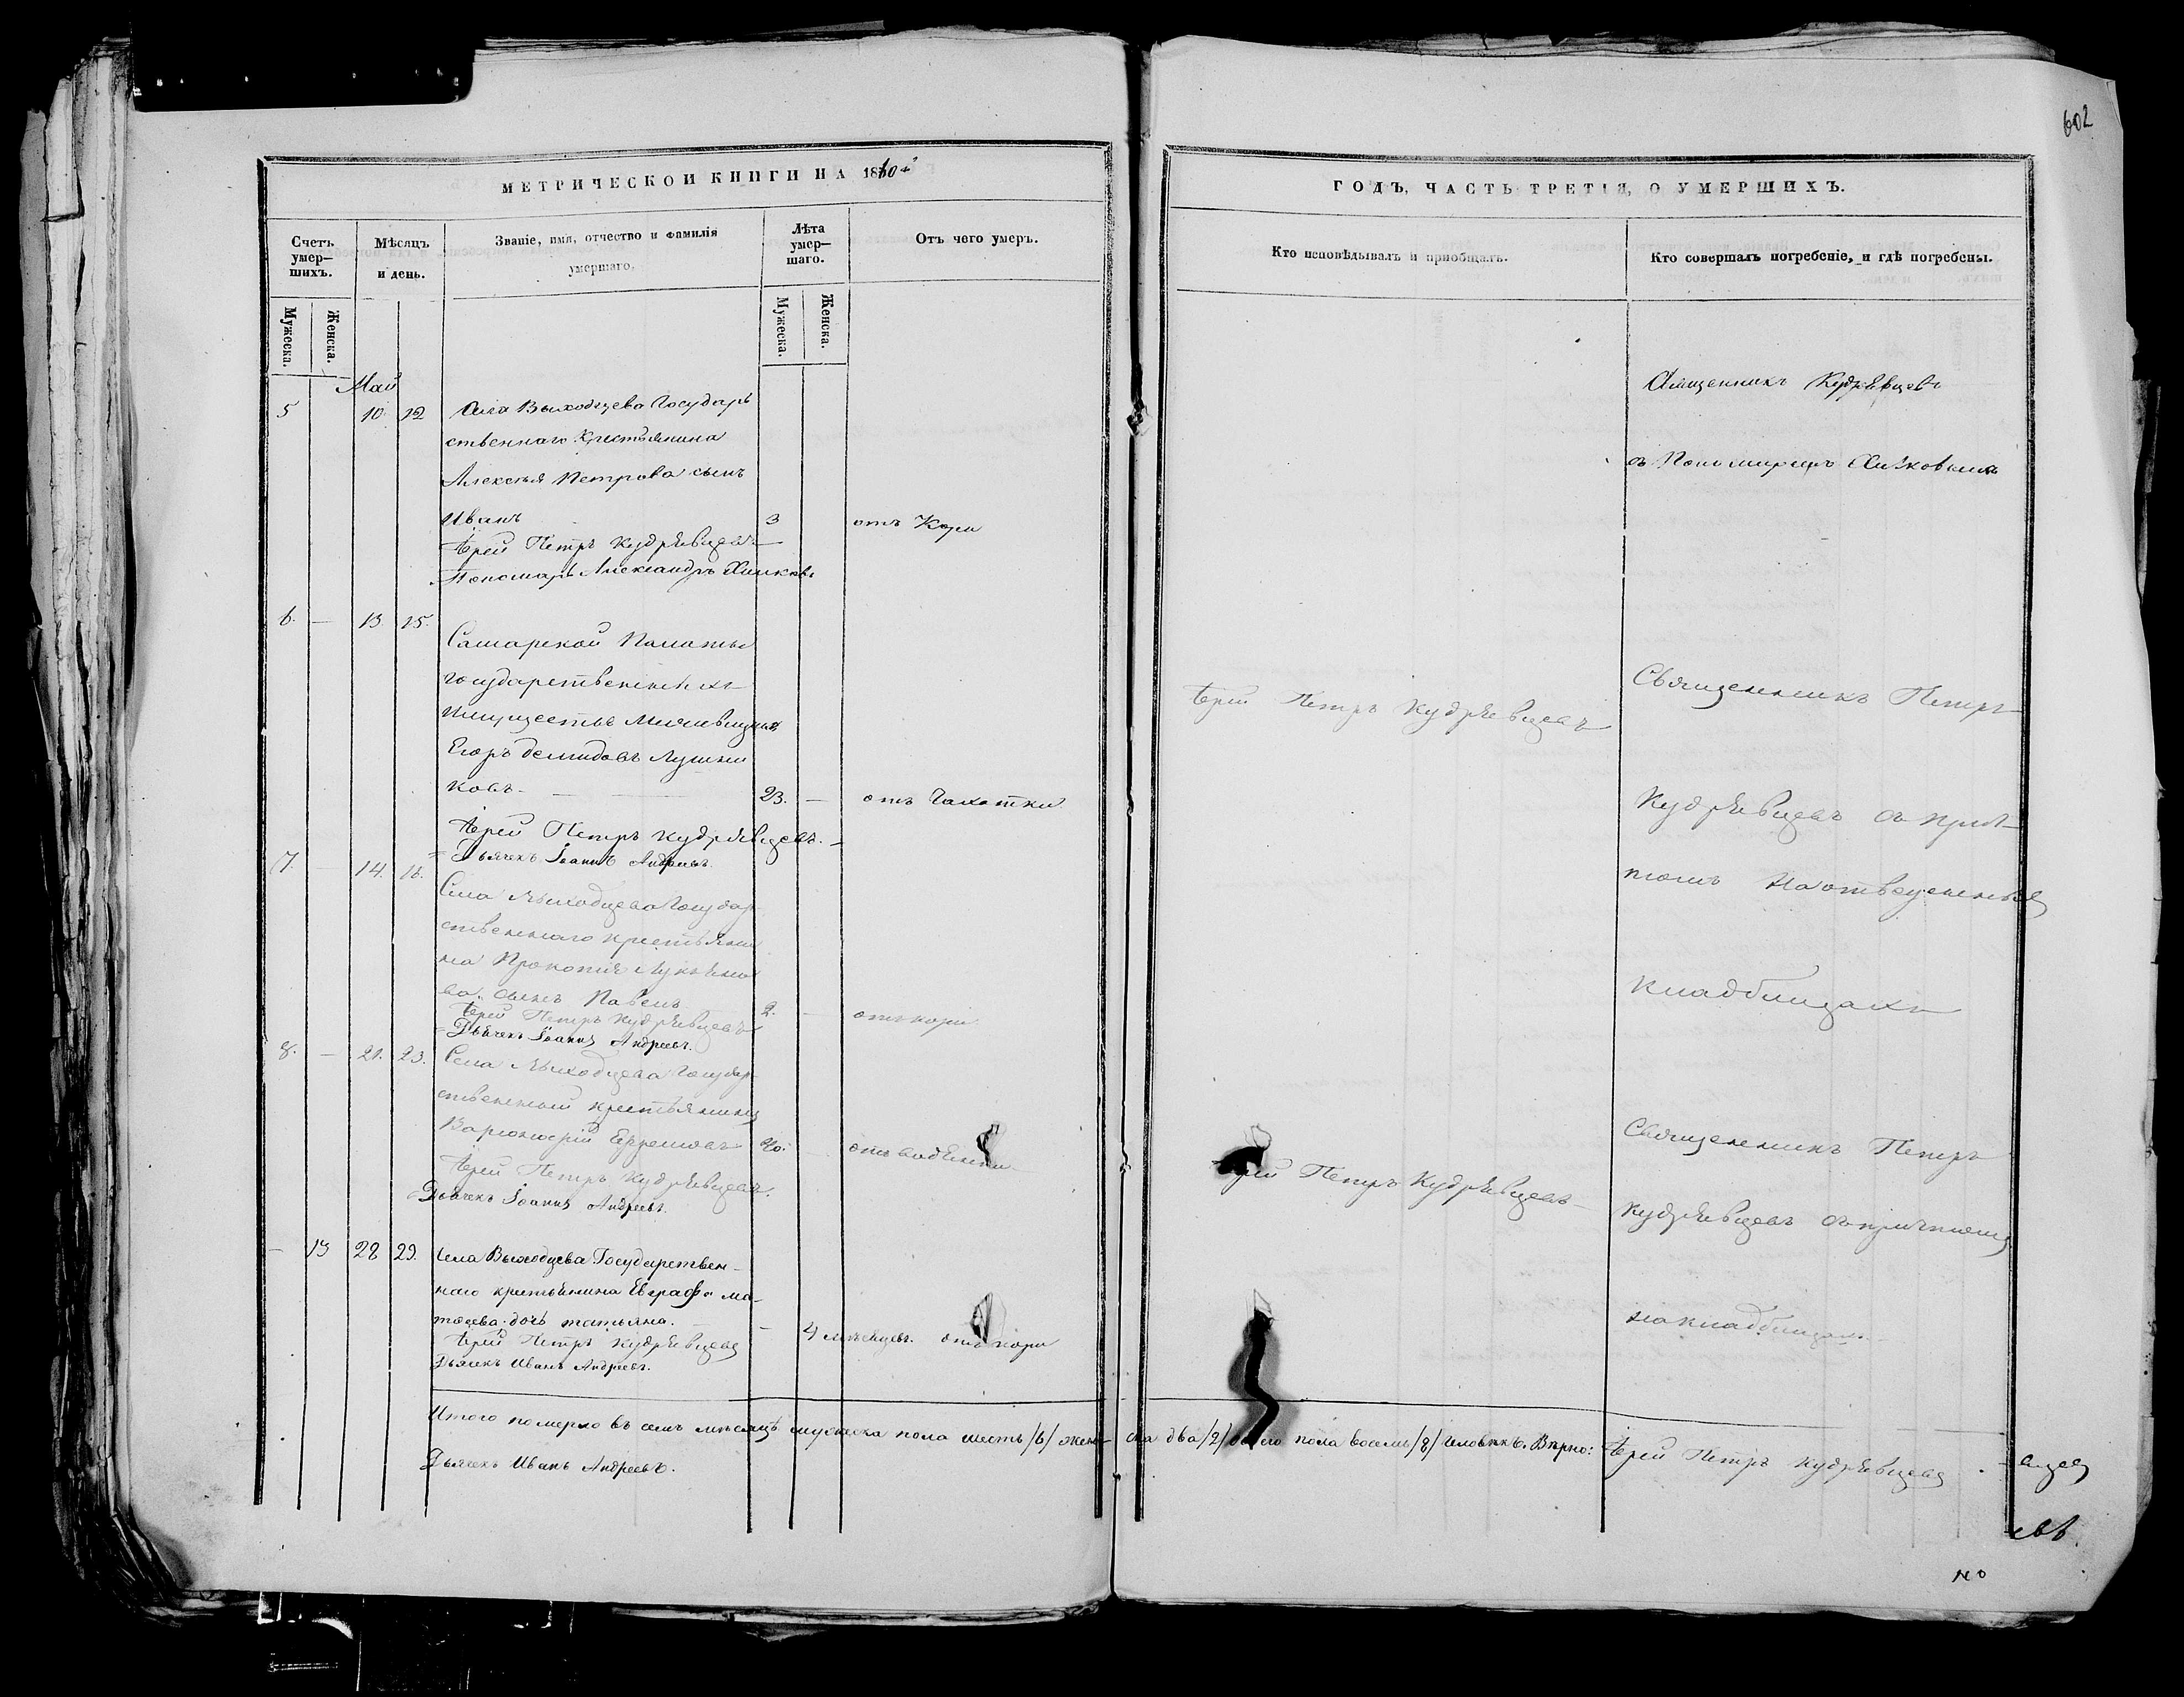 602
МЕТРИЧЕСКОЙ КНИГИ НА 1860й
ГОДЪ, ЧАСТЬ ТРЕТІЯ, О УМЕРШИХЪ.
Счетъ умер-
шихъ.
Мужеска.
Женска.
Мѣсяцъ
и день.
Званіе, имя, отчество и фамилія
умершаго.
Лѣта
умер-
шаго.
Мужеска.
Женска.
Отъ чего умеръ.
Кто исповѣдывалъ и пріобщалъ.
Кто совершалъ погребеніе, и гдѣ погребены.
Май
5 10 12 Села Выходцева Государ
ственнаго Крестьянина
Алексѣя Петрова сынъ
Иванъ 3 отъ Кори
Іерей Петръ Кудрявцевъ
Пономарь Александръ
Священникъ Кудрявцевъ
съ Пономаремъ
6. — 13 15.
Самарской Палаты
Государственныхъ
Имуществъ
Егоръ Демидовъ Лушни
ковъ — 23. — отъ Чахотки
Іерей Петръ Кудрявцевъ
Дьячекъ Іоаннъ Андреевъ.
Іерей Петръ Кудрявцевъ
Священникъ Петръ
Кудрявцевъ съ прич
томъ На отведенныхъ
Кладбищахъ
7. — 14. 16.
Села Выходцева Государ
ственнаго крестьяни
на Прокопія Лукьяно
ва сынъ Павелъ 2. — отъ кори
Іерей Петръ Кудрявцевъ
Дьячекъ Іоаннъ Андреевъ.
8. — 21. 23. Села Выходцева Государ
ственный крестьянинъ
Варѳоломей Ефремовъ 40.
Іерей Петръ Кудрявцевъ.
Дьячекъ Іоаннъ Андреевъ.
Петръ Кудрявцевъ
Священникъ Петръ
Кудрявцевъ съ причтомъ
на кладбищахъ
— 13 28 29. Села Выходцева Государствен-
наго крестьянина Евграфа Ма-
твѣева дочь Татьяна. — 4 мѣсяцевъ. отъ кори
Іерей Петръ Кудрявцевъ
Дьячекъ Иванъ Андреевъ.
Итого померло въ семъ мѣсяцѣ мужеска пола шесть /6/ жен-ска два /2/ пола восемь /8/ человѣкъ. Вѣрно: Іерей Петръ Кудрявцевъ
Дьячекъ Иванъ Андреевъ.